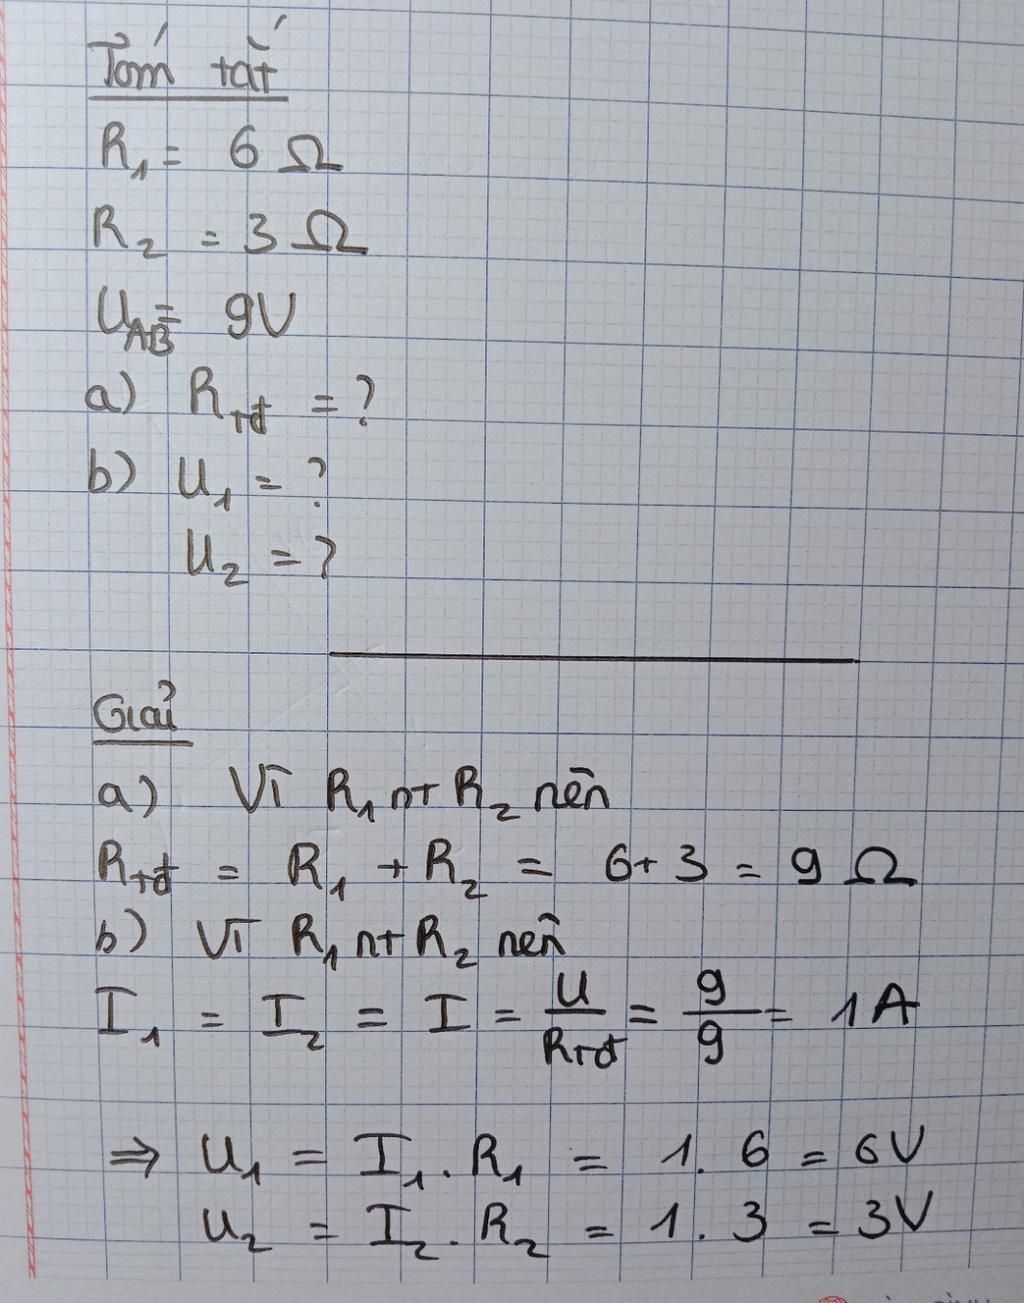 Tóm tắt
R₁ = 6 Ω
R₂ = 3 Ω
U_AB = 9V
a) R_tđ = ?
b) U₁ = ?
U₂ = ?
Giải
a) Vì R₁ nt R₂ nên
R_tđ = R₁ + R₂ = 6+3 = 9 Ω
b) Vì R₁ nt R₂ nên
I₁ = I₂ = I = U/R_tđ = 9/9 = 1A
⇒ U₁ = I₁.R₁ = 1.6 = 6V
U₂ = I₂.R₂ = 1.3 = 3V